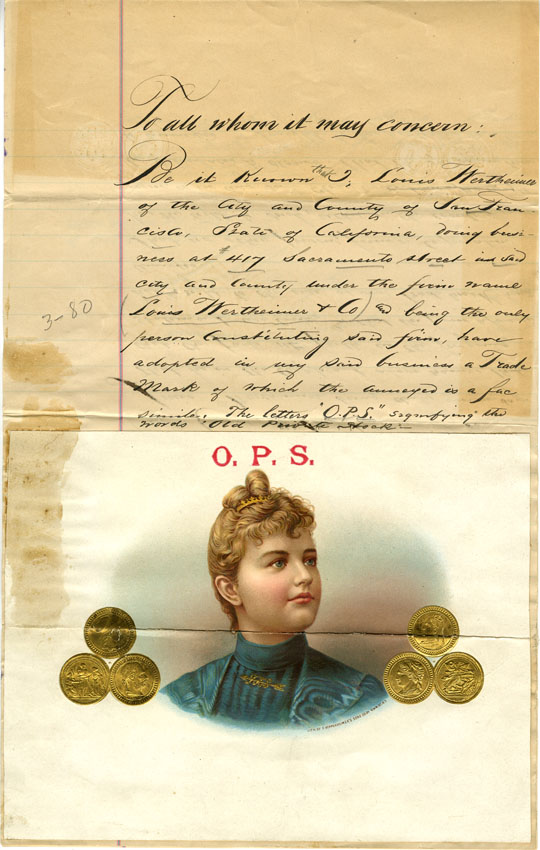 To all whom it may concern:
Be it Known that I, Louis Wertheimer
of the City and County of San Fran-
cisco, State of California, doing busi-
ness at 417 Sacramento street in said
city and County under the firm name
(Louis Wertheimer & Co) and being the only
person Constituting said firm, have
adopted in my said business a Trade
Mark of which the annexed is a fac
simile. The letters "O.P.S." signifying the
words "Old Private Stock"
3-80
O. P. S.